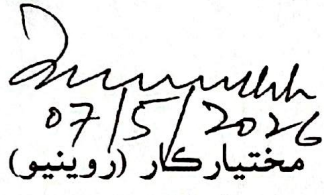 07/5/2026
مختيارڪار (روينيو)